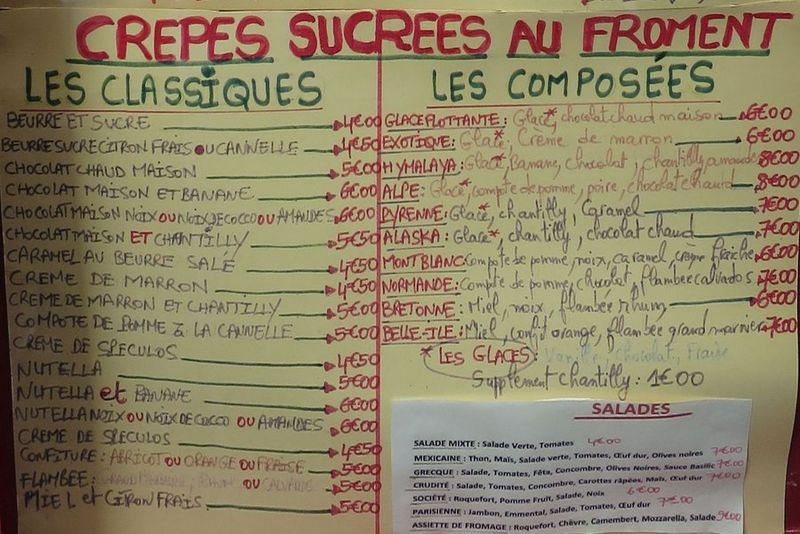 CREPES SUCREES AU FROMENT
LES CLASSIQUES
BEURRE ET SUCRE 4€00
BEURRE SUCRE CITRON FRAIS OU CANNELLE 4€50
CHOCOLAT CHAUD MAISON 5€00
CHOCOLAT MAISON ET BANANE 6€00
CHOCOLAT MAISON NOIX OU NOIX DE COCO OU AMANDES 6€00
CHOCOLAT MAISON ET CHANTILLY 5€50
CARAMEL AU BEURRE SALE 4€50
CREME DE MARRON 4€50
CREME DE MARRON ET CHANTILLY 5€00
COMPOTE DE POMME à LA CANNELLE 5€00
CREME DE SPECULOS 4€50
NUTELLA 5€00
NUTELLA et BANANE 6€00
NUTELLA NOIX OU NOIX DE COCO OU AMANDES 6€00
CREME DE SPECULOS 4€50
CONFITURE : ABRICOT OU ORANGE OU FRAISE 5€00
FLAMBEE: OU CALVADOS 5€00
MIEL et CITRON FRAIS 5€00
LES COMPOSÉES
GLACE FLOTTANTE : Glace*, chocolat chaud maison 6€00
EXOTIQUE : Glace*, Crème de marron 6€00
HYMALAYA : Glace*, Banane, chocolat, chantilly, amande 8€00
ALPE : Glace*, compote de pomme, poire, chocolat chaud 8€00
PYRENNE : Glace*, chantilly, Caramel 7€00
ALASKA : Glace*, chantilly, chocolat chaud 7€00
MONT BLANC: Compote de pomme, noix, caramel, crème fraîche 6€00
NORMANDE : Compote de pomme, chocolat, flambée calvados 7€00
BRETONNE : Miel, noix, flambée rhum 6€00
BELLE-ILE : Miel, confit d'orange, flambée grand marnier 7€00
* LES GLACES : Vanille, chocolat, Fraise
Supplement Chantilly : 1€00
SALADES
SALADE MIXTE : Salade Verte, Tomates 4€00
MEXICAINE : Thon, Maïs, Salade verte, Tomates, Œuf dur, Olives noires 7€00
GRECQUE : Salade, Tomates, Fêta, Concombre, Olives Noires, Sauce Basilic 7€00
CRUDITÉ : Salade, Tomates, Concombre, Carottes râpées, Maïs, Œuf dur 7€00
SOCIÉTÉ : Roquefort, Pomme Fruit, Salade, Noix 6€00
PARISIENNE : Jambon, Emmental, Salade, Tomates, Œuf dur 7€00
ASSIETTE DE FROMAGE : Roquefort, Chèvre, Camembert, Mozzarella, Salade 9€00